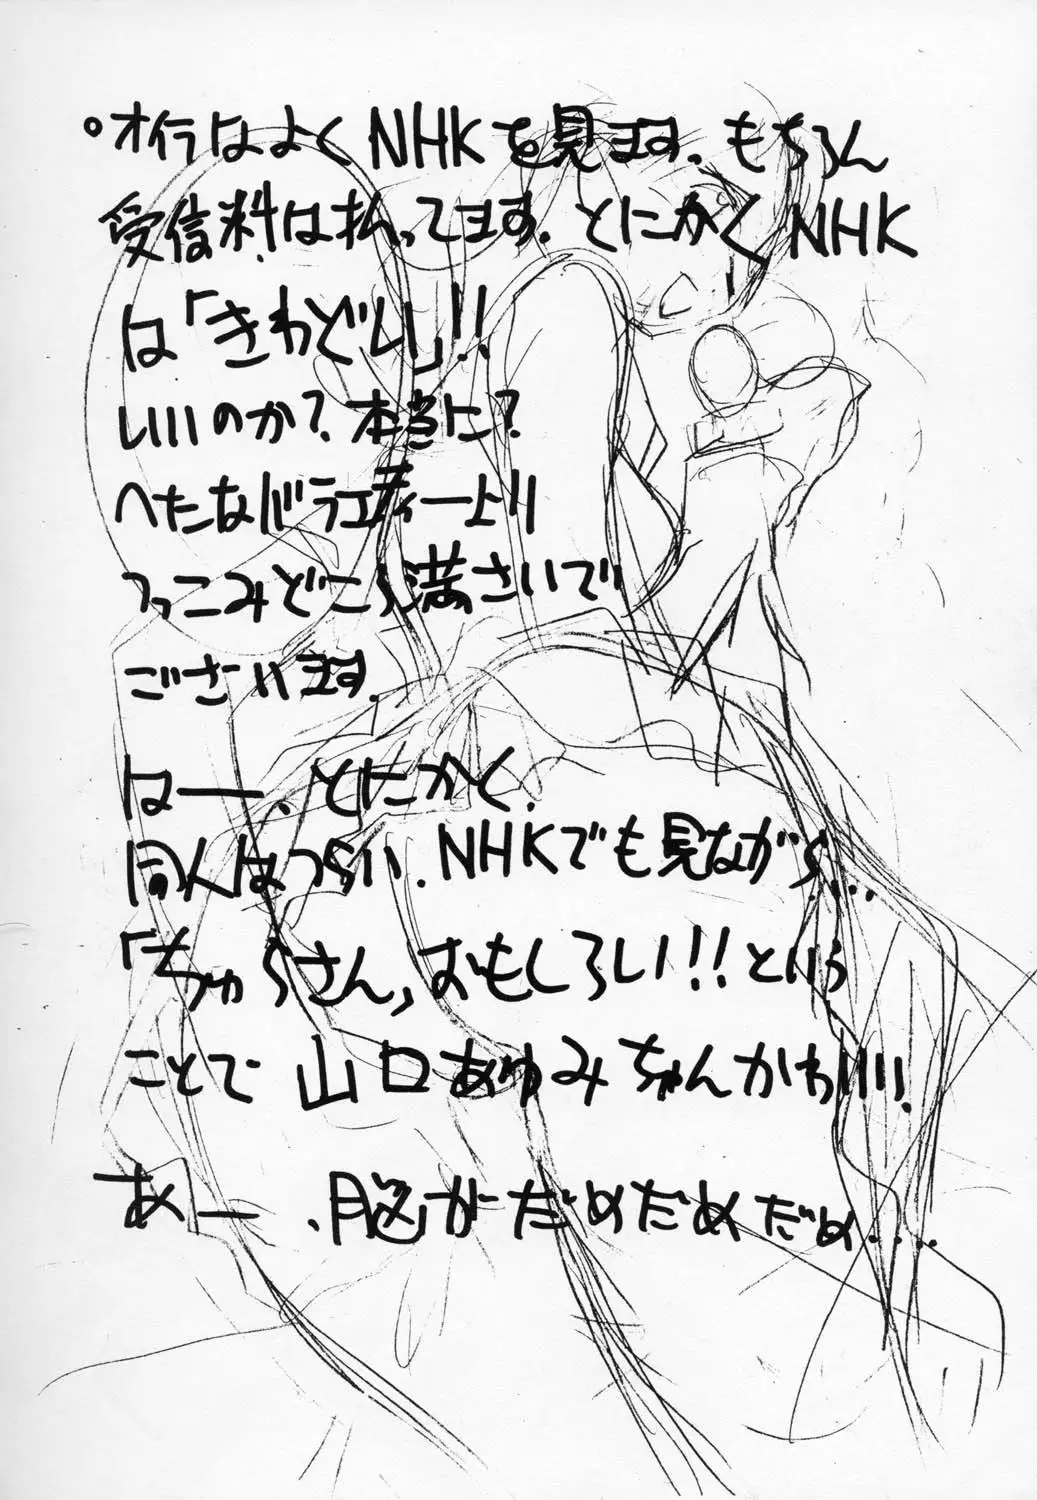 。オイラはよくNHKを見ます。もちろん
受信料は払ってます。とにかくNHK
は「きわどい」!!
いいのか?本当に?
へたなバラエティーより
つっこみどころ満さいで
ございます。
はー、とにかく、
同人はつらい。NHKでも見ながら…
「ちゅらさん」おもしろい!!という
ことで山口あゆみちゃんかわいい!
あー、脳がだめだめだめ‥‥